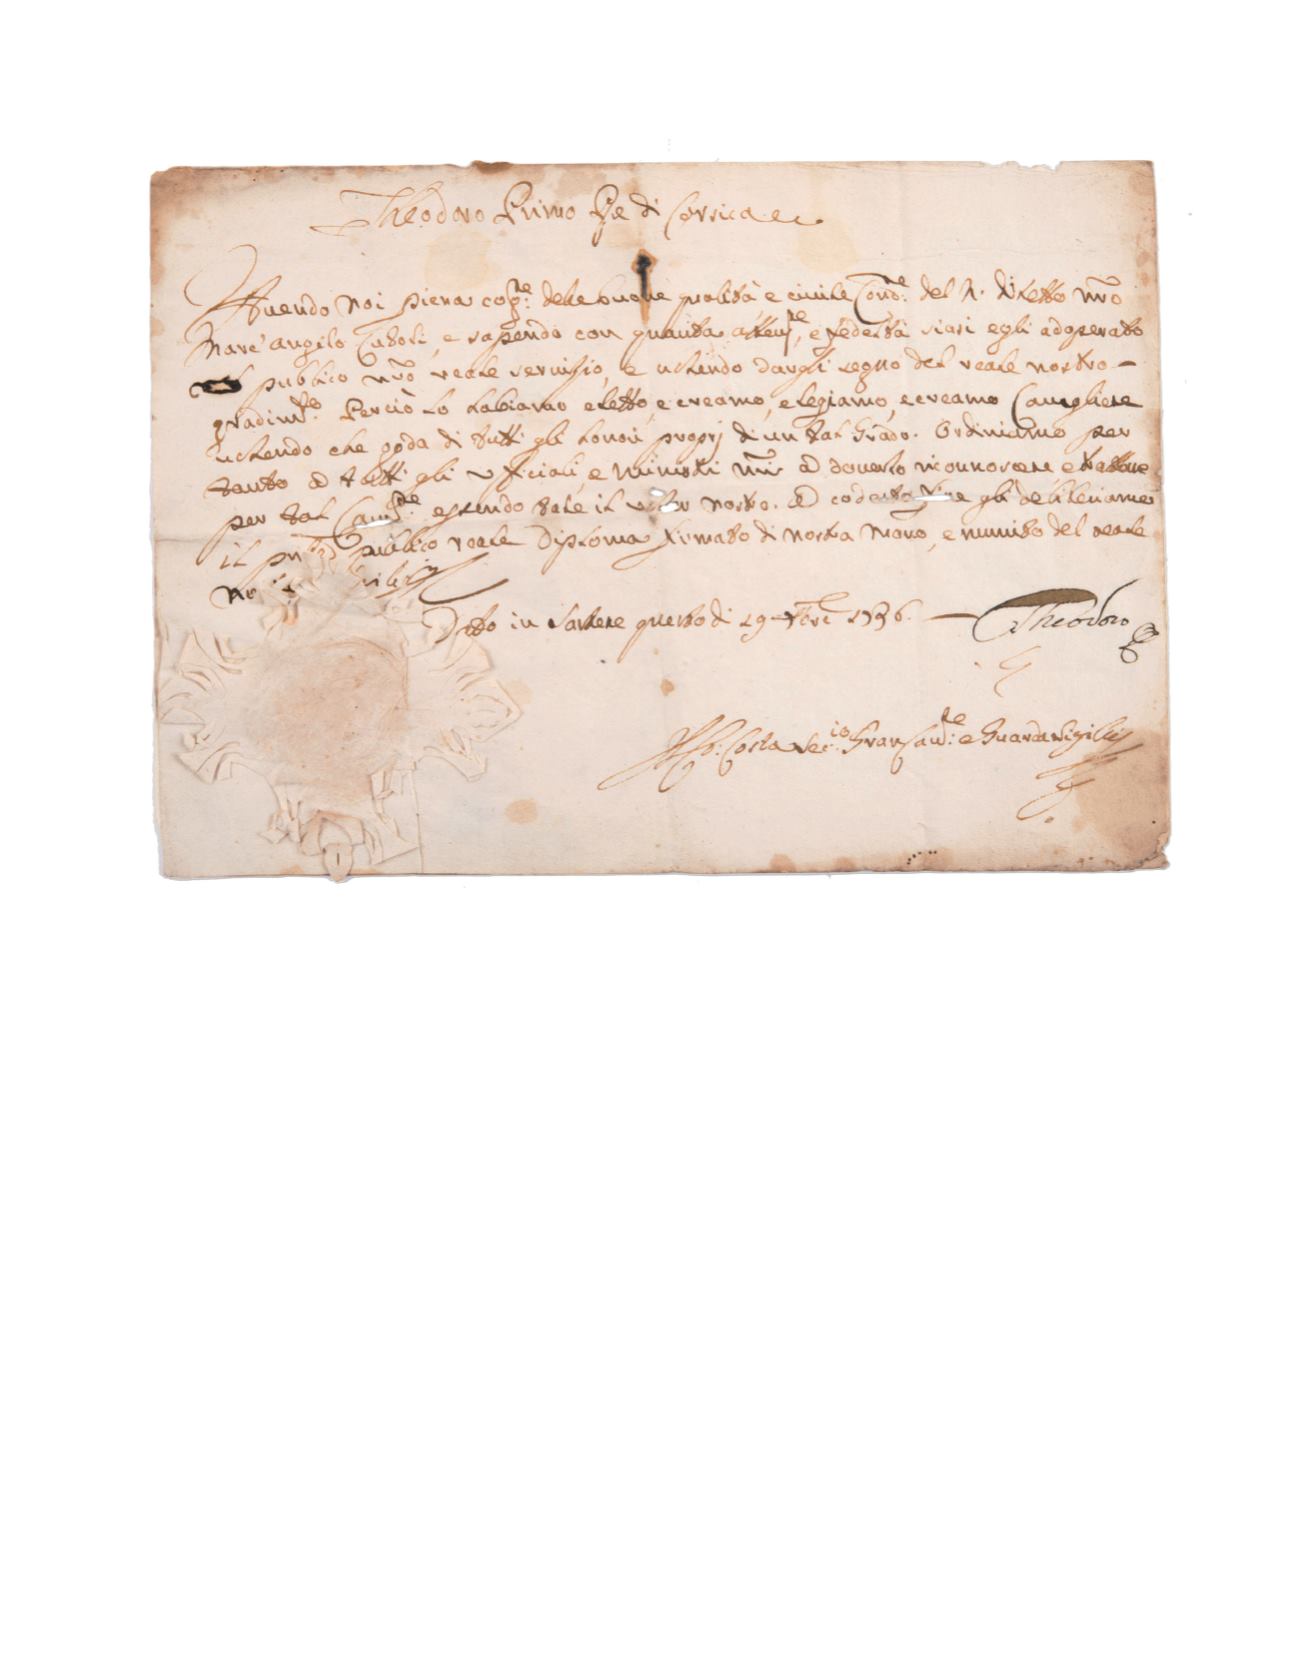 Theodoro Primo Re di Corsica ec
Avendo Noi piena cog.ne dele buone qualità e civile Con.ne del N. diletto nro
Marc'angilo Tusoli, e sapendo con quanta atten.ne, e fedeltà siasi egli adoperato
publico nro reale servizio, e volendo dargli segno del reale nostro -
gradim.to Perciò lo habiamo eletto, e creamo, elegiamo, e creamo Cavagliere
volendo che goda di tutti gli honori proprj di un tal Grado. Ordiniamo per
tanto a tutti gli ufficiali, e Ministri nri a doverlo riconnoscere e trattare
per tal essendo tale il voler nostro. a codesto fine gli
il publico reale Diploma firmato di nostra Mano, e munito del reale
Dato in Sartene questo di 19 1736. - Theodoro
Costa Seg.io Gran Can.re e Guarda Sigilli